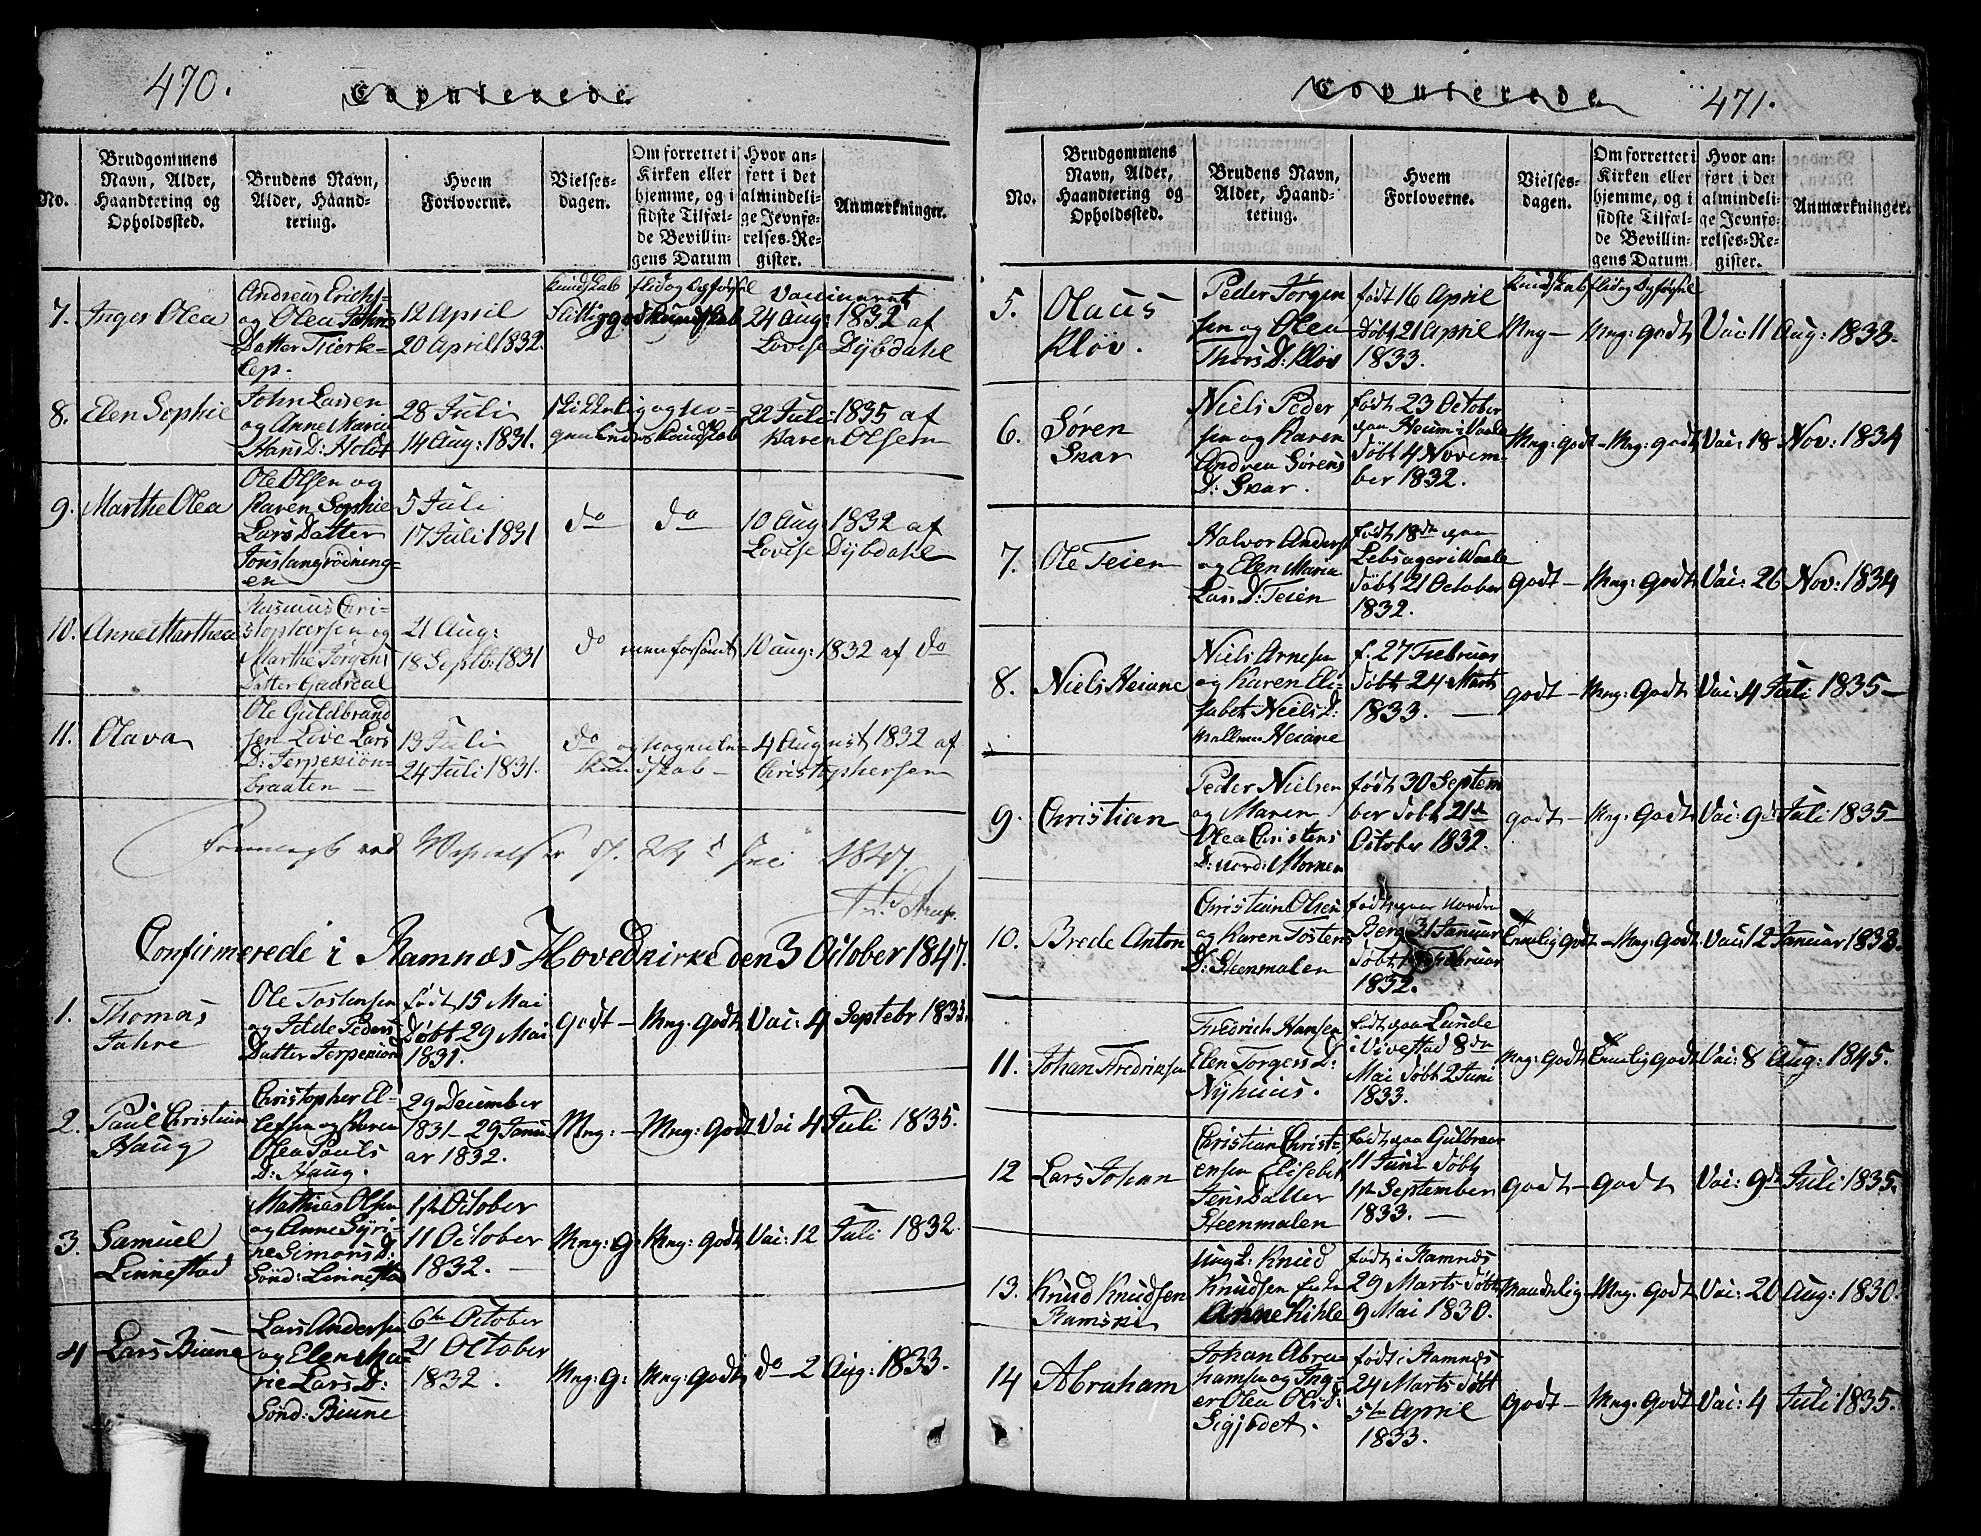 470.
Copulerede.
No.
Brudgommens
Navn, Alder,
Haandtering og
Opholdssted.
Brudens Navn,
Alder, Haand-
tering.
Hvem
Forloverne.
Vielses-
dagen.
Om forrettet i
Kirken eller
hjemme, og i
sidste Tilfæl-
de Bevillin-
gens Datum
Hvor an-
ført i det
almindeli-
ge Jevnfø-
relses-Re-
gister.
Anmærkninger.
7. Inger Olea
Andreas Erichs-
og Olea Johns
Datter
12 April
20 April 1832.
Kundskab flid og Opførsel
Flittig god Kundskab
Vaccineret
24 Aug: 1832 af
Lovise Dybdahl
8. Elen Sophie
John Larsen
og Anne Marie
Hans D: Holdt
28 Juli
14 Aug: 1831.
skikkelig og no-
genlunde Kundskab
22 Juli: 1835 af
Karen Olsen
9. Marthe Olea
Ole Olsen og
Karen Sophie
Lars Datter
5 Juli
17 Juli: 1831
do do
10 Aug: 1832 af
Lovise Dybdahl
10. Anne Marthea
Rasmus Chri-
stophersen og
Marthe Jørgens
Datter
21 Aug:
18 Septb: 1831
do men forsømt
10 aug: 1832 af do
11. Olava
Ole Guldbrand
sen Live Lars
D:
braaten
13 Juli
24 Juli: 1831.
do og nogenlun-
Kundskab
4 August 1832 af
Christophersen
1847.
Confirmerede i Ramnæs Hovedkirke den 3 October 1847.
1. Thomas
Jahre
Ole Tostensen
og Ilde Peders
Datter
født 15 Mai
Døbt 29 Mai
1831.
godt - Mng: godt Vai: 4 Septebr 1833.
2. Paul Christian
Haug
Christopher El-
lefsen og Karen
Olea Pauls
D: Haug.
29 December
1831 - 29 Janu
ar 1832.
Mng: - Mng: godt Vai 4 Juli 1835.
3. Samuel
Linnestad
Mathies Olsen
og Anne Syri-
ne Simons D:
Sönd: Linnestad
1st October
11 October
1832.
Mng: g: Mng: godt Vai: 12 Juli 1832.
4 Lars Biune
Lars Andersen
og Elen Ma-
rie Lars D:
Sönd: Biune
6te October
21 October
1832.
Mng: g: Mng: godt do 2 Aug: 1833.
Copulerede.
471.
No.
Brudgommens
Navn, Alder,
Haandtering og
Opholdssted.
Brudens Navn,
Alder, Haand-
tering.
Hvem
Forloverne.
Vielses-
dagen.
Om forrettet i
Kirken eller
hjemme, og i
sidste Tilfæl-
de Bevillin-
gens Datum.
Hvor an-
ført i det
almindeli-
ge Jevnfø-
relses-Re-
gister.
Anmærkninger.
5. Olaus
Kløv.
Peder Jørgen
sen og Olea
Thors D: Kløv
født 16 April
Døbt 21 April
1833.
Kundskab flid og Opførsel
Mng - Mng: godt Vai 11 Aug: 1833.
6. Søren
Skar
Niels Peder
sen og Karen
Andrea Sørens
D: Skar.
født 23 October
paa
Døbt 4 Novem-
ber 1832.
Mng: godt - Mng: godt Vai: 18 Nov: 1834
7. Ole Teien
Halvor Anders
og Elen Maria
Lars D: Teien
født 18de paa
Døbt 21 October
1832.
godt - Mng: godt Vai: 26 Nov: 1834
8. Niels Heiane
Niels Arnesen
og Karen Eli-
sabet Neils D:
mellem Heiane
f. 27 Februar
Døbt 24 Marts
1833.
godt - Mng: godt Vai: 4 Juli 1835
9. Christian
Peder Nielsen
og Maren
Olea Christens
D: nord: Morken
født 30 Septem
ber Døbt 21de
October 1832.
godt - Mng: godt Vai: 9de Juli 1835
10. Brede Anton
Christian Olsen
og Karen Tostens
D: Steenmalen
født paa Nordre
Berg 31 Januar
Døbt Februar
1832.
godt - Mng: godt Vai: 12 Januar 1833.
11. Johan Fredriksen
Fredrich Hansen
Elen Torgers D:
Nyhuus.
født paa Lunde
i Vivestad 8de
Mai Døbt 2 Juni
1833.
Mng: godt godt Vai: 8 Aug: 1845.
12 Lars Johan
Christian Christ-
ensen Elisebet
Jens Datter
Steenmalen
født paa
11 Juni Døbt
1st September
1833.
godt - godt Vai: 9de Juli: 1835.
13. Knud Knudsen
Ramski
Ungk: Knud
Knudsen
Anne Kihle
født i Ramnæs
29 Marts Døbt
9 Mai 1830.
Maadelig - Mng: godt Vai: 20 Aug: 1830.
14 Abraham
Johan Abra-
hamsen og Ing-
er Olea Olis D:
født i Ramnæs
24 Marts Døbt
5te April
1833.
godt - Mng: godt Vai: 4 Juli 1835.